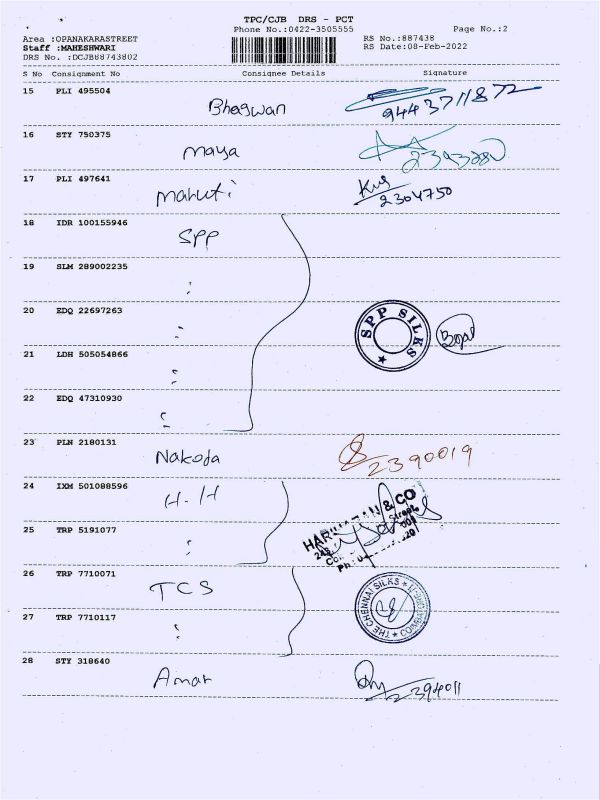 TPC/CJB DRS - PCT
Phone No.:0422-3505555
Page No.:2
Area :OPANAKARASTREET
Staff :MAHESHWARI
DRS No. :DCJB88743802
RS No.:887438
RS Date:08-Feb-2022
S No Consignment No Consignee Details Signature
15 PLI 495504 Bhagwan 9443711872
16 STY 750375 Maya
17 PLI 497641 Maruti 2304750
18 IDR 100155946 SPP
19 SLM 289002235 "
20 EDQ 22697263 "
SPP SILKS
21 LDH 505054866 "
22 EDQ 47310930 "
23 PLN 2180131 Nakoda 2390019
24 IXM 501088596 H.H
HARIHARAN & CO
Street
25 TRP 5191077 "
26 TRP 7710071 TCS
THE CHENNAI SILKS
27 TRP 7710117 "
28 STY 318640 Amar 2394011